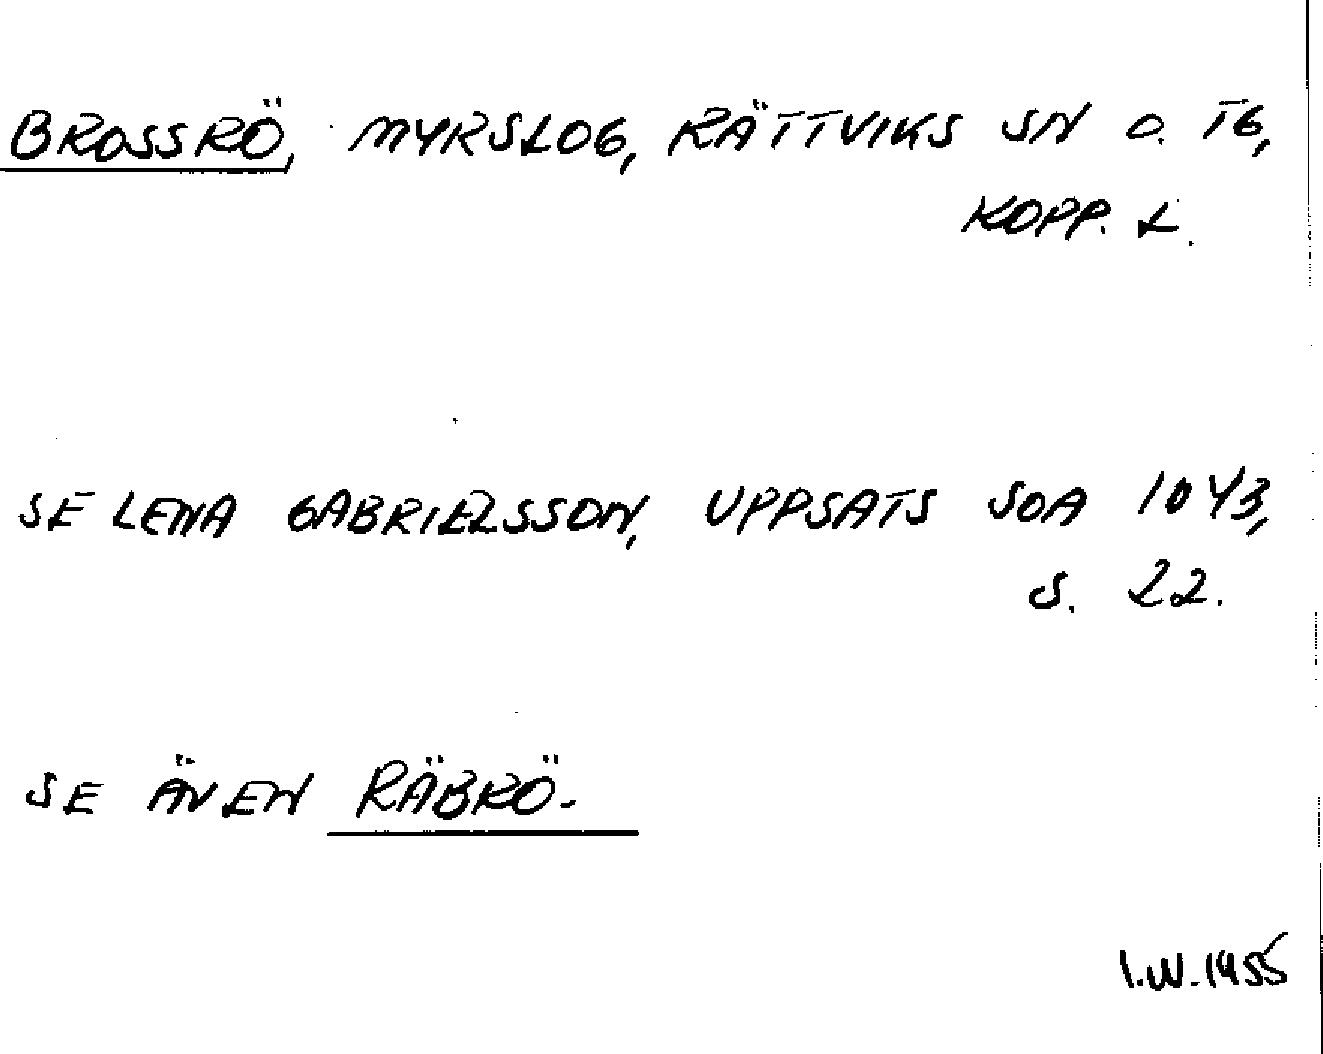 BROSSRÖ, MYRSLOG, RÄTTVIKS SN O. TG,
KOPP. L.
SE LENA GABRIELSSON, UPPSATS SOA 1043,
S. 22.
SE ÄVEN RÄBRÖ-
I.W. 1955